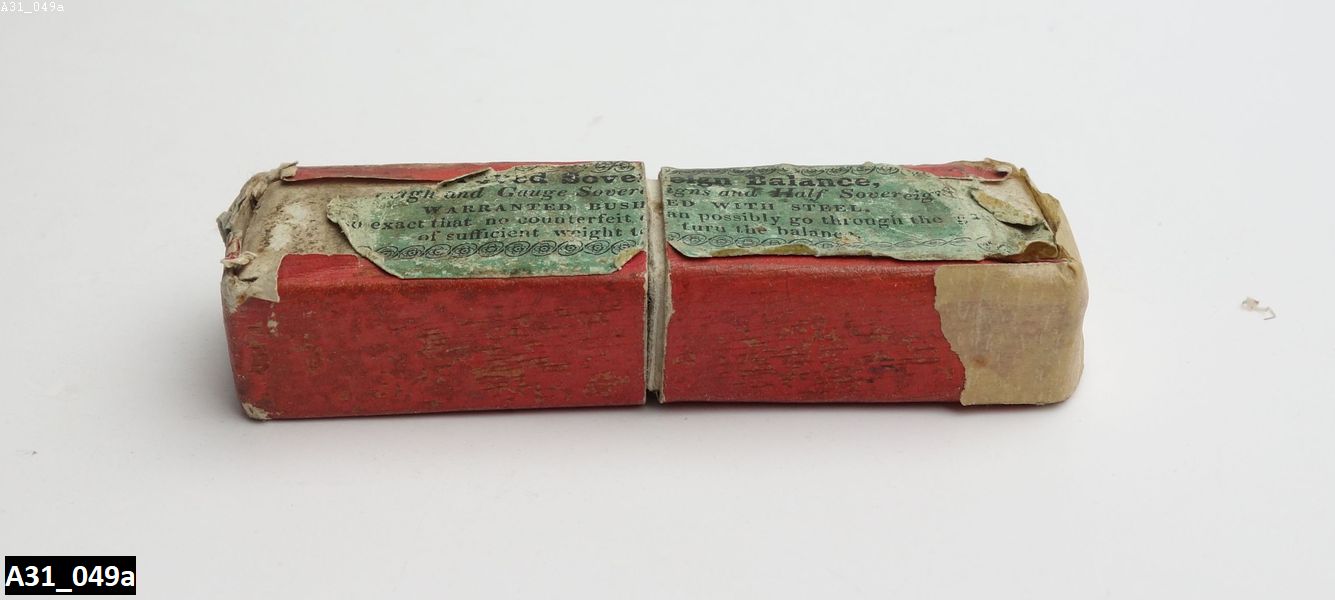 A31_049a
Sovereign Balance,
and Gauge Sovereigns and Half Sovereigns
WARRANTED BUSHED WITH STEEL,
so exact that no counterfeit can possibly go through the
of sufficient weight to turn the balance
A31_049a